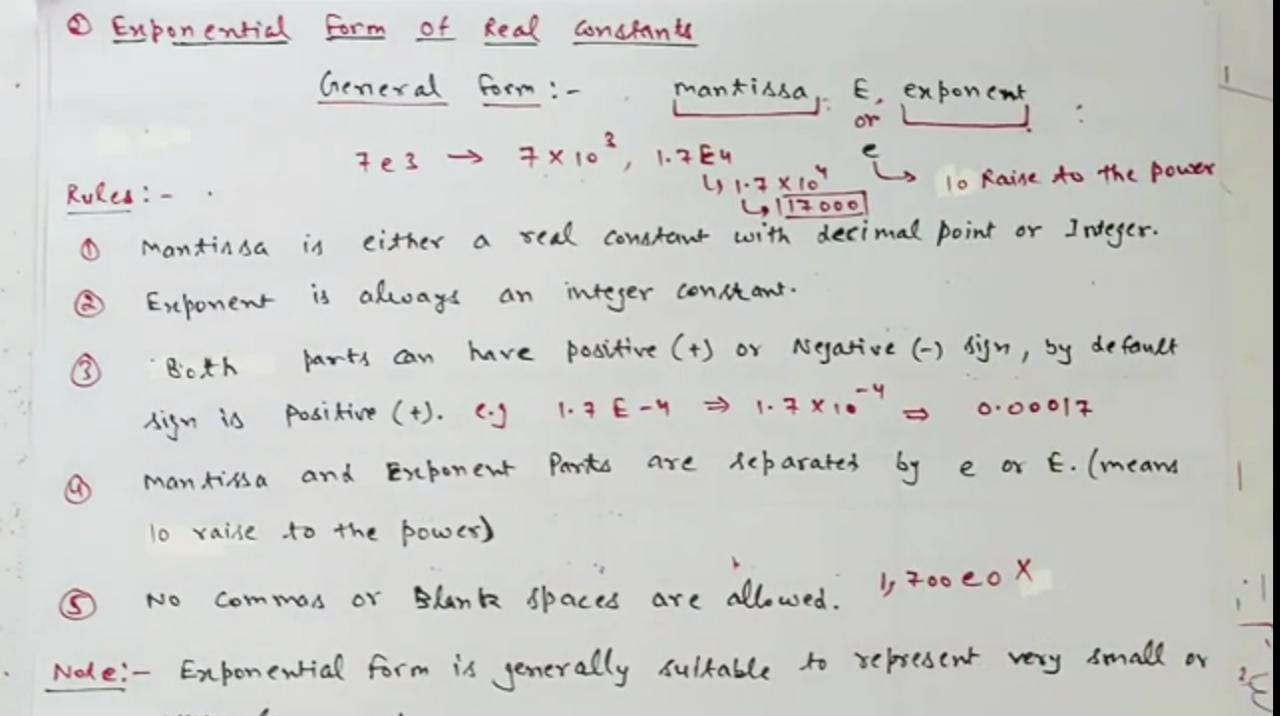 ② Exponential Form of Real Constants
General Form:- mantissa E exponent
or
e
7e3 → 7×10³, 1.7E4
↳ 1.7×10⁴ ↳ 10 Raise to the power
↳ 17000
Rules:-
① Mantissa is either a real constant with decimal point or Integer.
② Exponent is always an integer constant.
③ Both parts can have positive (+) or Negative (-) sign, by default
sign is positive (+). e.g 1.7E-4 ⇒ 1.7×10⁻⁴ ⇒ 0.00017
④ Mantissa and Exponent Parts are separated by e or E. (means
10 raise to the power)
⑤ No commas or Blank spaces are allowed. 1,700e0 X
Note:- Exponential form is generally suitable to represent very small or